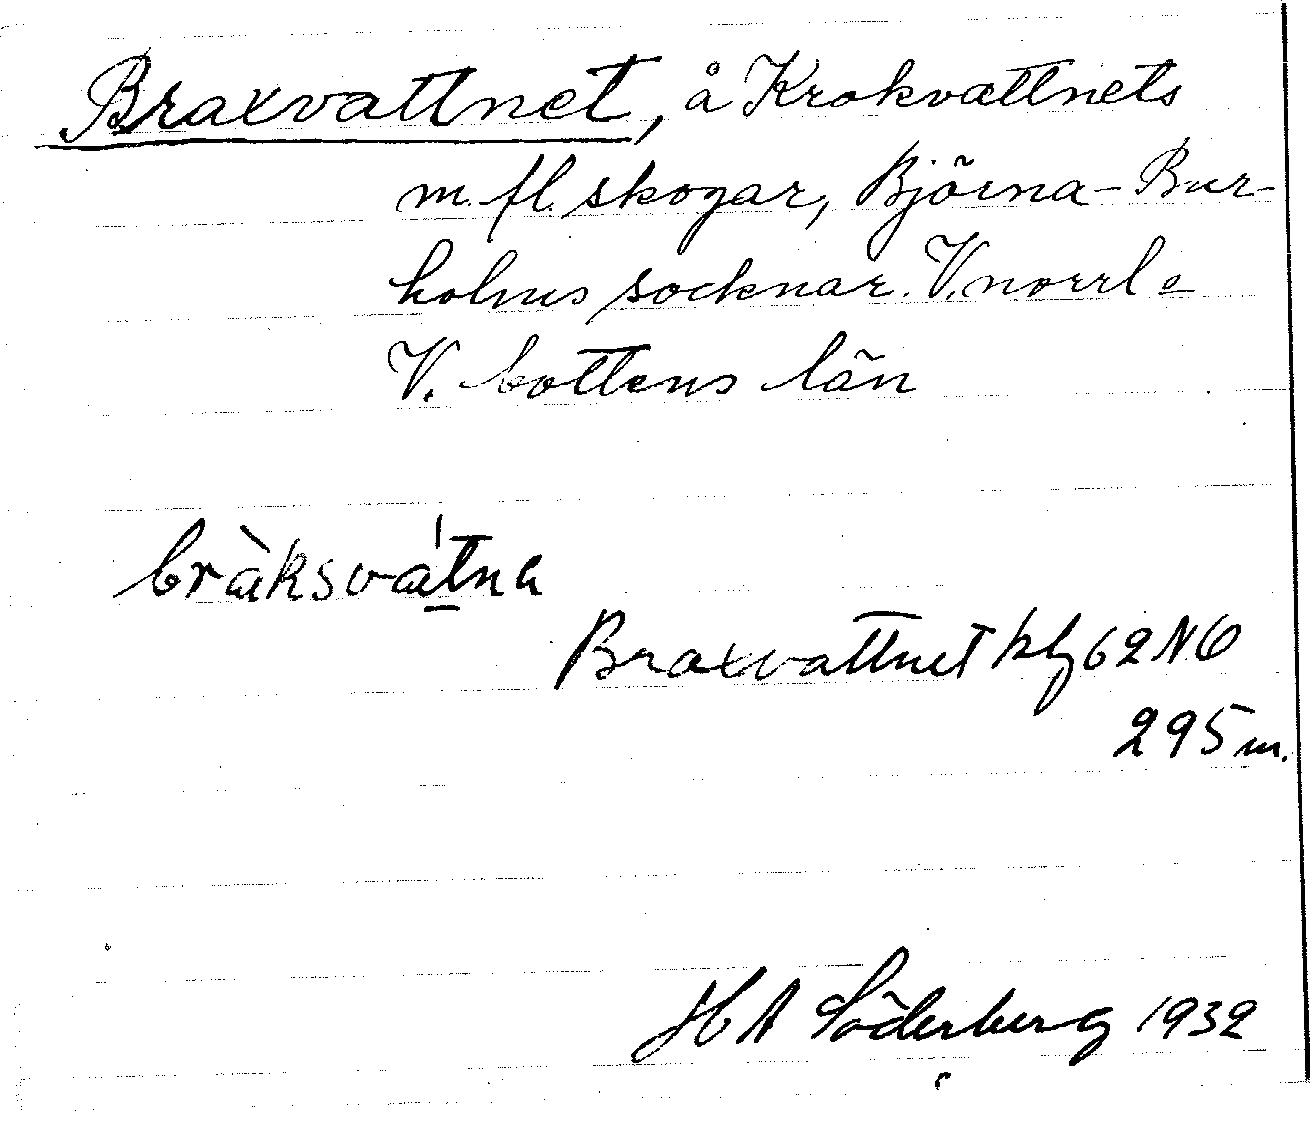 Braxvattnet, å Krokvattnets
m. fl. skogar, Björna-Bur-
holms socknar. V.norrl o
V. bottens län
bràksvátna
Braxvattnet kbl 62 NO
295 m.
H A Söderberg 1932